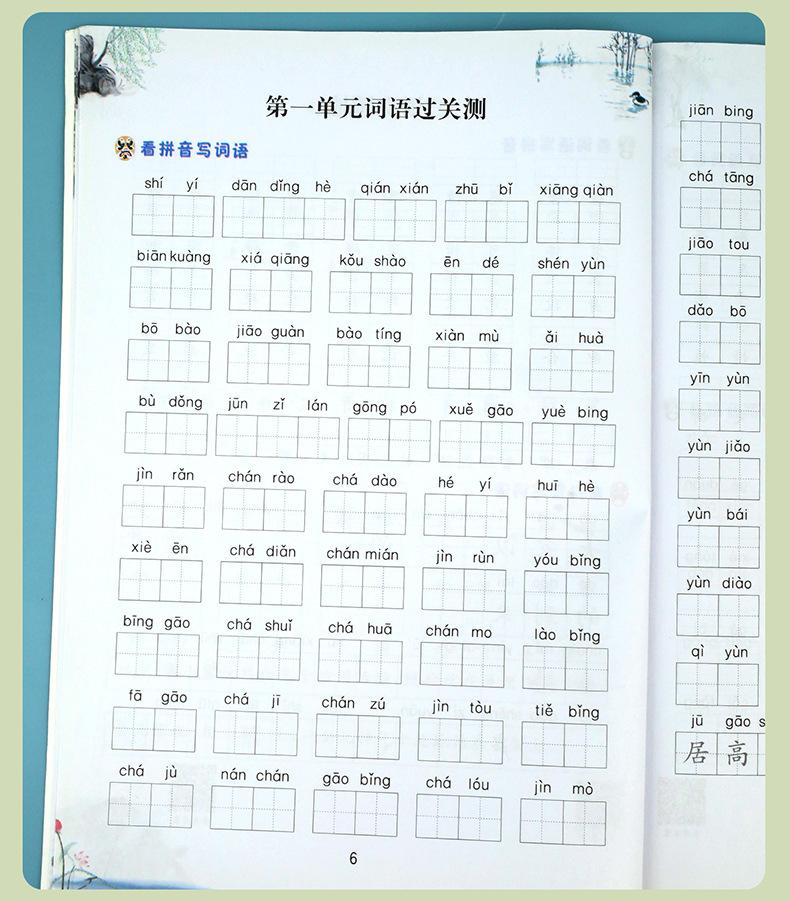 第一单元词语过关测
看拼音写词语
shí yí dān dǐng hè qián xián zhū bǐ xiāng qiàn
biān kuàng xiá qiāng kǒu shào ēn dé shén yùn
bō bào jiāo guàn bào tíng xiàn mù ǎi huà
bù dǒng jūn zǐ lán gōng pó xuě gāo yuè bing
jìn rǎn chán rào chá dào hé yí huī hè
xiè ēn chá diǎn chán mián jìn rùn yóu bǐng
bīng gāo chá shuǐ chá huā chán mo lào bǐng
fā gāo chá jī chán zú jìn tòu tiě bǐng
chá jù nán chán gāo bǐng chá lóu jìn mò
6
jiān bing
chá tāng
jiāo tou
dǎo bō
yīn yùn
yùn jiǎo
yùn bái
yùn diào
qì yùn
jū gāo s
居高